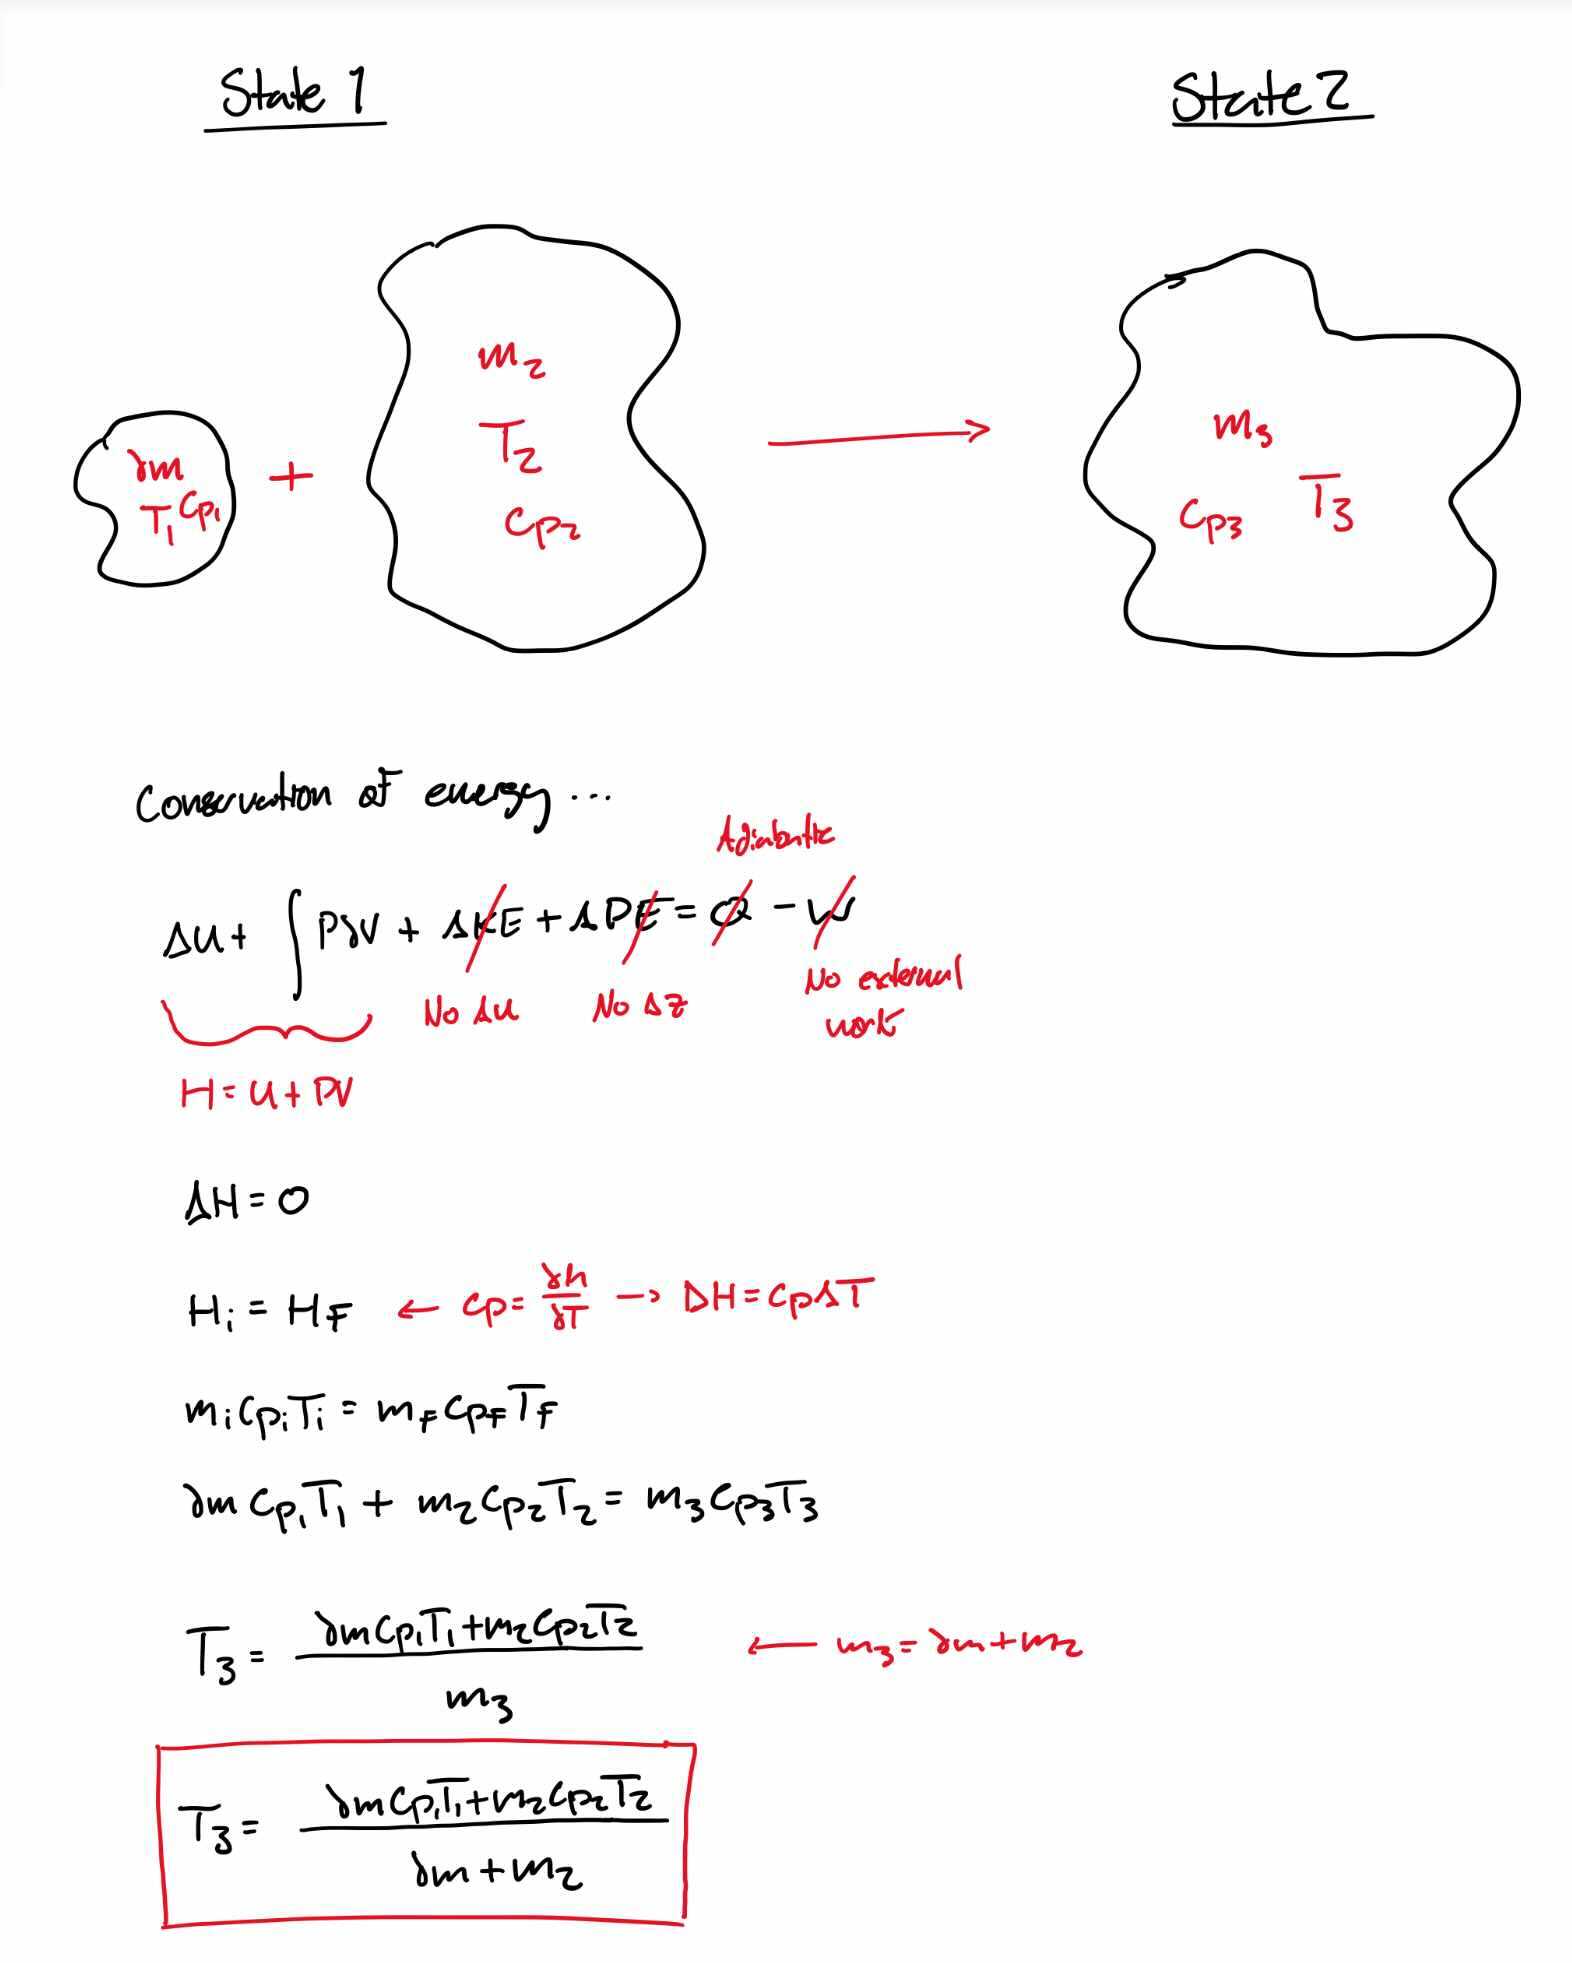 State 1
State 2
m₂
T₂
Cp₂
∂m
T₁ Cp₁
+
→
m₃
Cp₃ T₃
Conservation of energy ...
Adiabatic
ΔU + ∫ P∂V + ΔKE + ΔPE = Q - W
No Δu
No Δz
No external
work
H = U + PV
ΔH = 0
Hᵢ = H_F ← Cp = ∂h/∂T → ΔH = CpΔT
mᵢCpᵢTᵢ = m_F Cp_F T_F
∂m Cp₁T₁ + m₂Cp₂T₂ = m₃Cp₃T₃
T₃ = (∂mCp₁T₁ + m₂Cp₂T₂) / m₃ ← m₃ = ∂m + m₂
T₃ = (∂mCp₁T₁ + m₂Cp₂T₂) / (∂m + m₂)